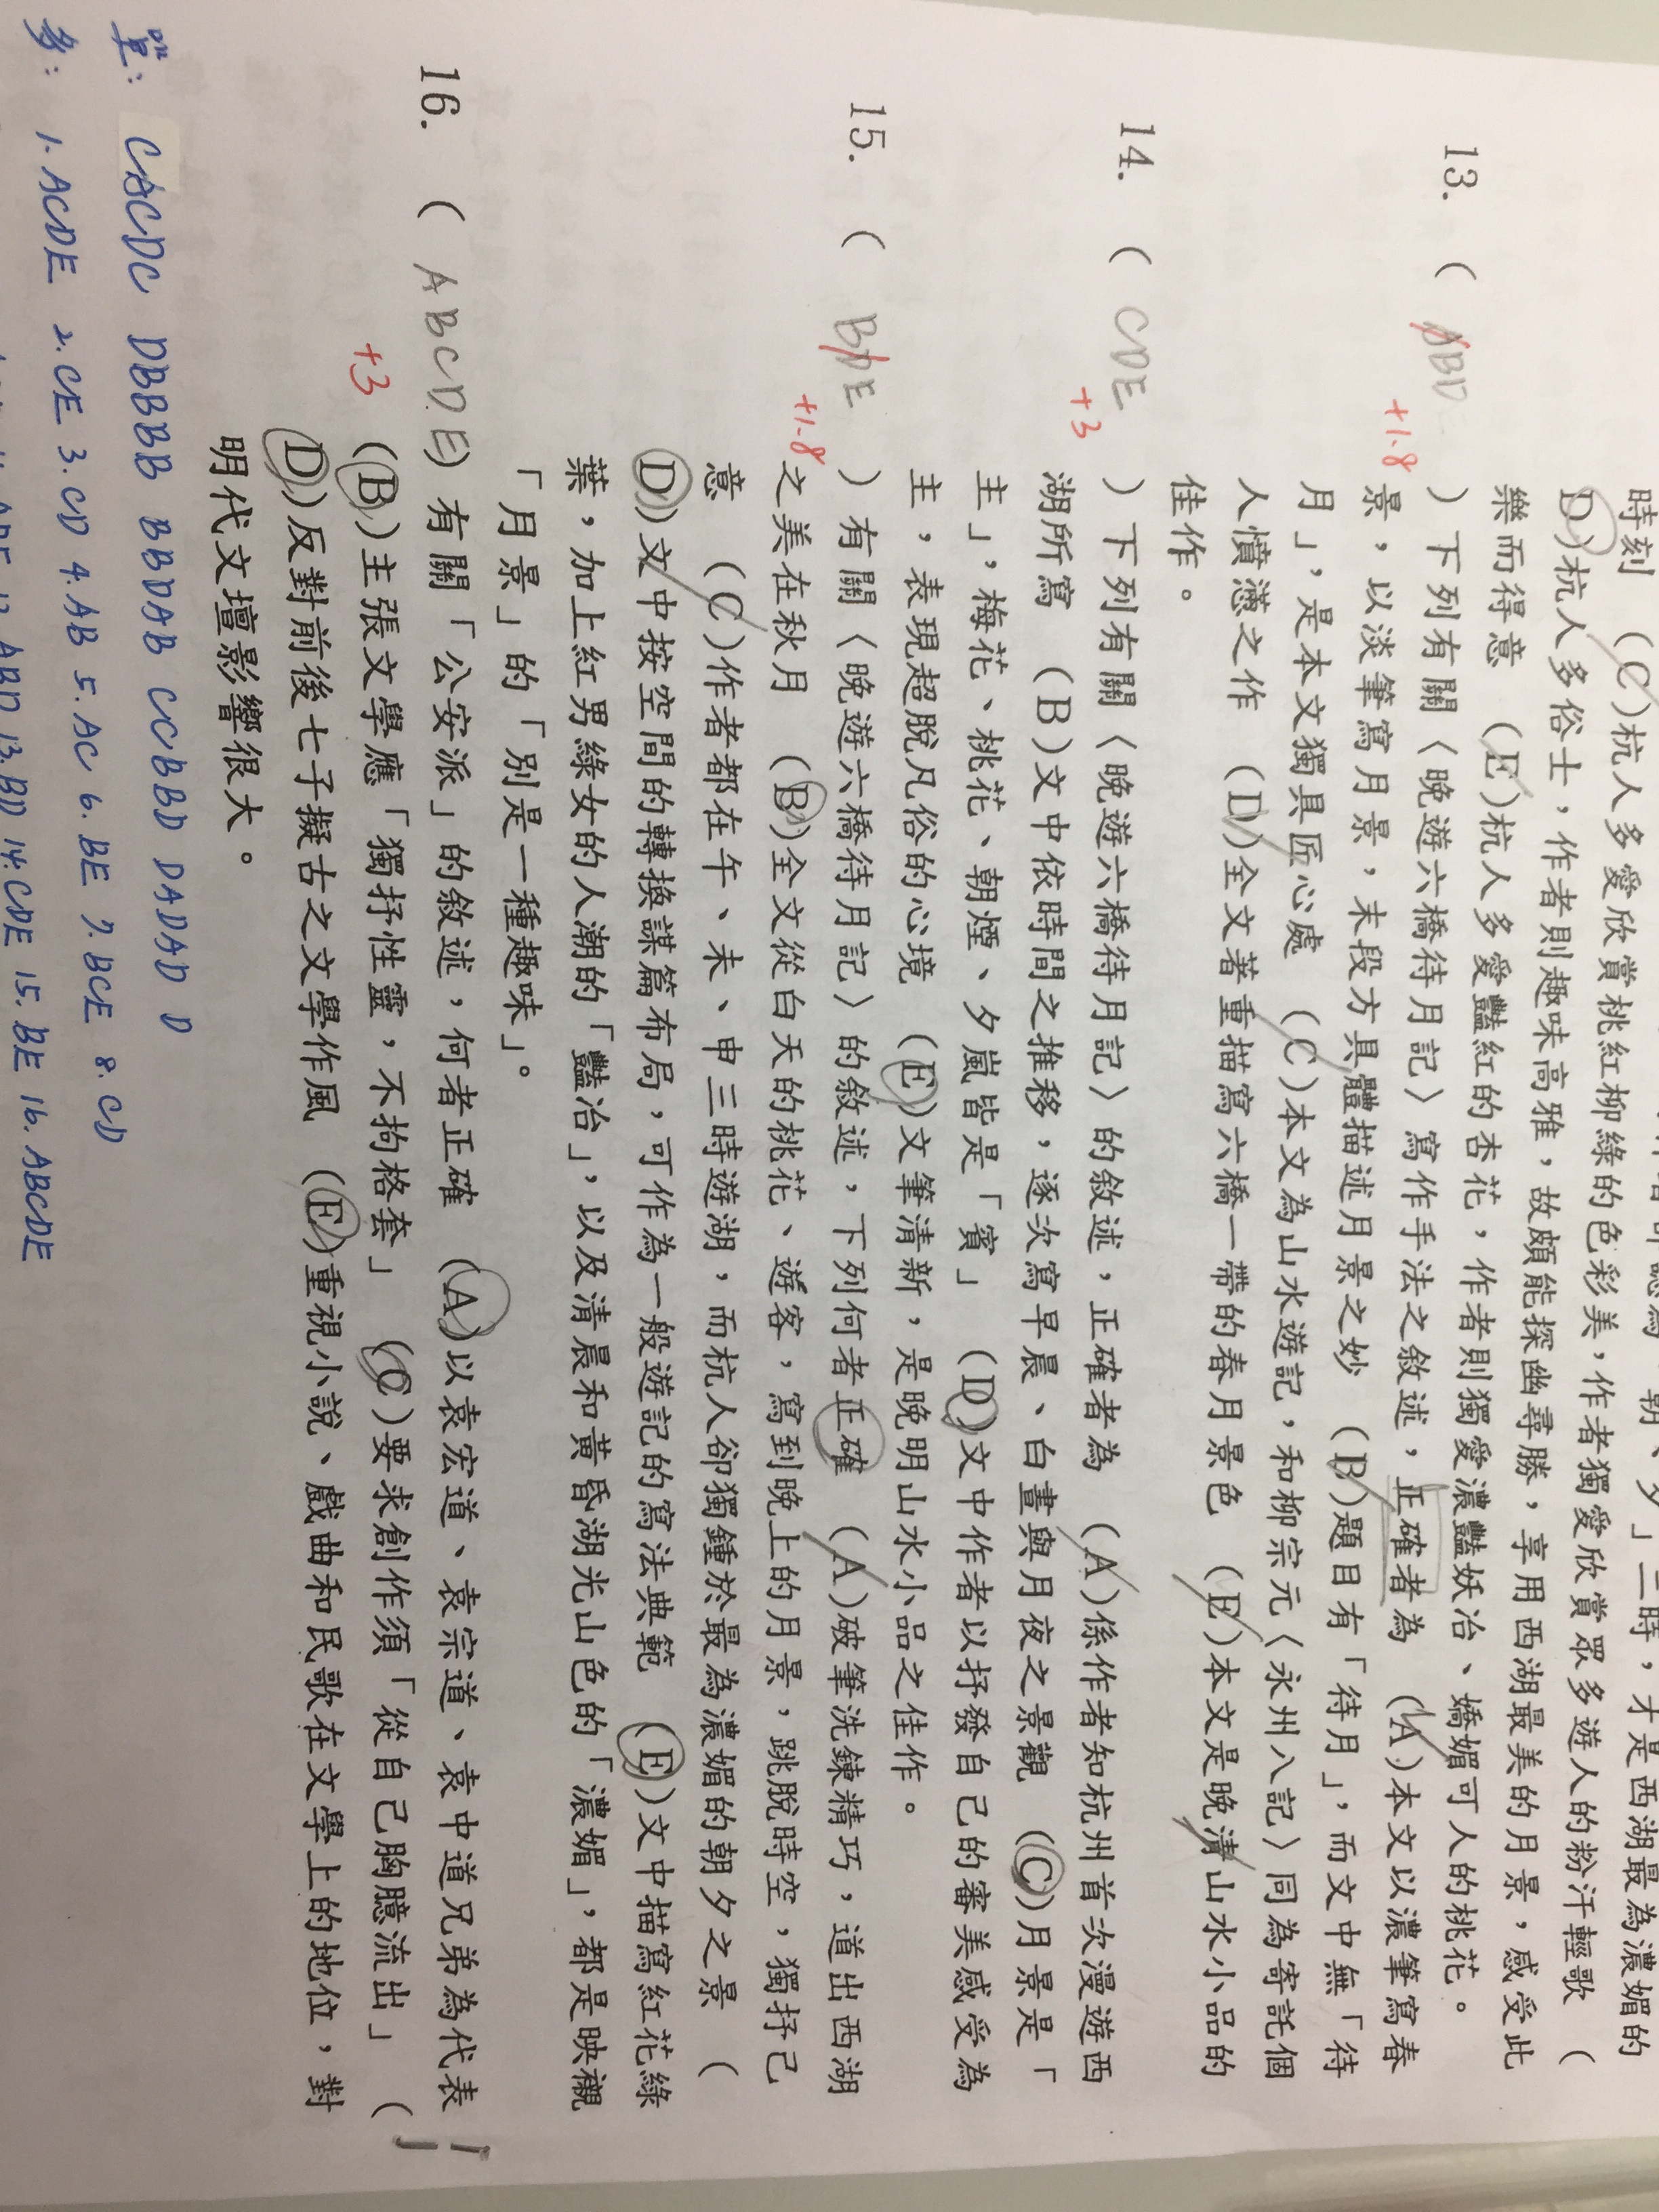 時刻　(C)杭人多愛欣賞桃紅柳綠的色彩美，作者獨愛欣賞眾多遊人的粉汗輕歌　(
D)杭人多俗士，作者則趣味高雅，故頗能探幽尋勝，享用西湖最美的月景，感受此
樂而得意　(E)杭人多愛豔紅的杏花，作者則獨愛濃豔妖冶、嬌媚可人的桃花。
13. ( ABD ) 下列有關〈晚遊六橋待月記〉寫作手法之敘述，正確者為　(A)本文以濃筆寫春
+1.8
景，以淡筆寫月景，末段方具體描述月景之妙　(B)題目有「待月」，而文中無「待
月」，是本文獨具匠心處　(C)本文為山水遊記，和柳宗元〈永州八記〉同為寄託個
人憤懣之作　(D)全文著重描寫六橋一帶的春月景色　(E)本文是晚清山水小品的
佳作。
14. ( CDE ) 下列有關〈晚遊六橋待月記〉的敘述，正確者為　(A)係作者知杭州首次漫遊西
+3
湖所寫　(B)文中依時間之推移，逐次寫早晨、白晝與月夜之景觀　(C)月景是「
主」，梅花、桃花、朝煙、夕嵐皆是「賓」　(D)文中作者以抒發自己的審美感受為
主，表現超脫凡俗的心境　(E)文筆清新，是晚明山水小品之佳作。
15. ( BDE ) 有關〈晚遊六橋待月記〉的敘述，下列何者正確　(A)破筆洗鍊精巧，道出西湖
+1.8
之美在秋月　(B)全文從白天的桃花、遊客，寫到晚上的月景，跳脫時空，獨抒己
意　(C)作者都在午、未、申三時遊湖，而杭人卻獨鍾於最為濃媚的朝夕之景　(
D)文中按空間的轉換謀篇布局，可作為一般遊記的寫法典範　(E)文中描寫紅花綠
葉，加上紅男綠女的人潮的「豔冶」，以及清晨和黃昏湖光山色的「濃媚」，都是映襯
「月景」的「別是一種趣味」。
16. ( ABCDE ) 有關「公安派」的敘述，何者正確　(A)以袁宏道、袁宗道、袁中道兄弟為代表
+3
(B)主張文學應「獨抒性靈，不拘格套」　(C)要求創作須「從自己胸臆流出」　(
D)反對前後七子擬古之文學作風　(E)重視小說、戲曲和民歌在文學上的地位，對
明代文壇影響很大。
單: CACDC DBBBB BBDAB CCBBD DADAD D
多: 1. ACDE 2. CE 3. CD 4. AB 5. AC 6. BE 7. BCE 8. CD
12. ABD 13. BD 14. CDE 15. BE 16. ABCDE